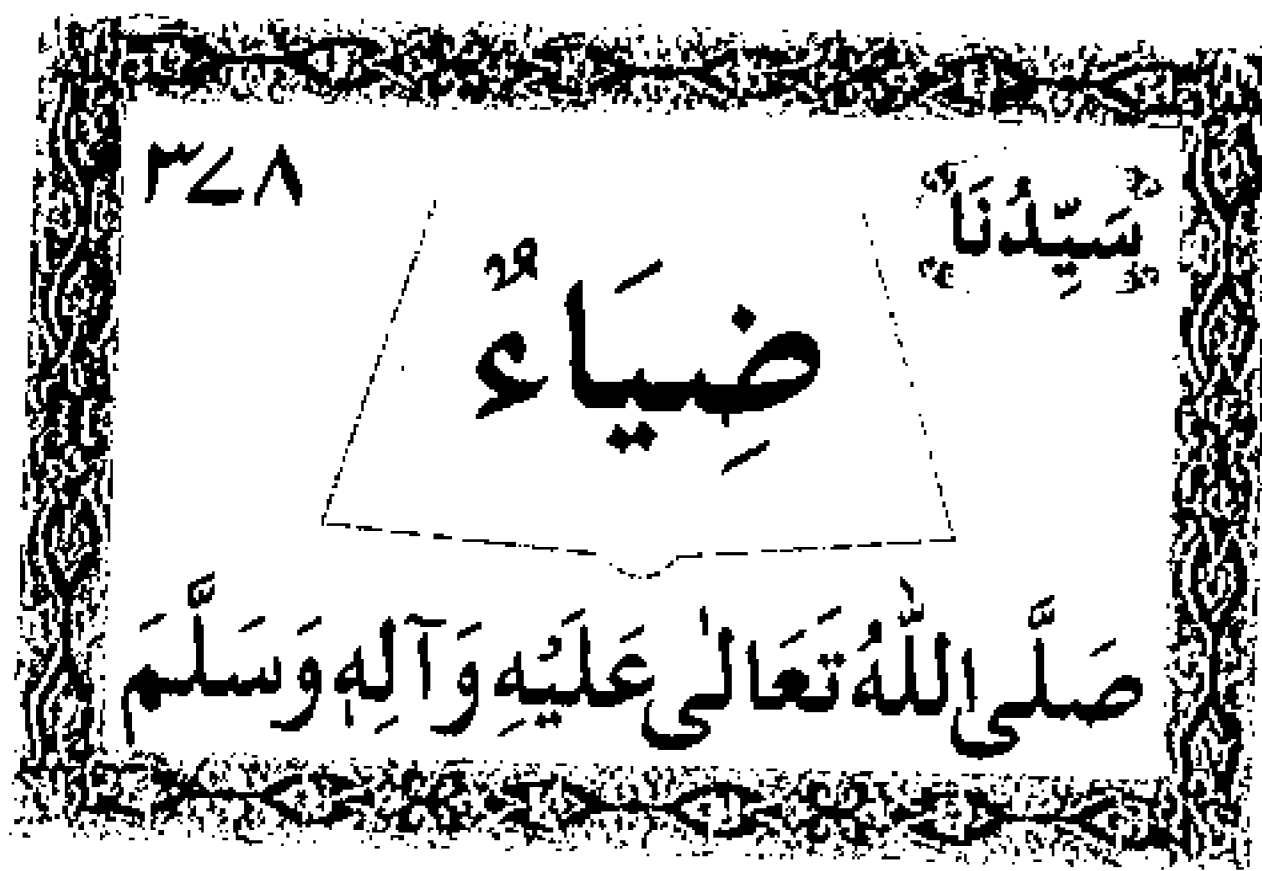 سَيِّدُنَا ۳۷۸
ضِيَاءٌ
صَلَّى اللّٰهُ تَعَالٰى عَلَيْهِ وَآلِهٖ وَسَلَّمَ